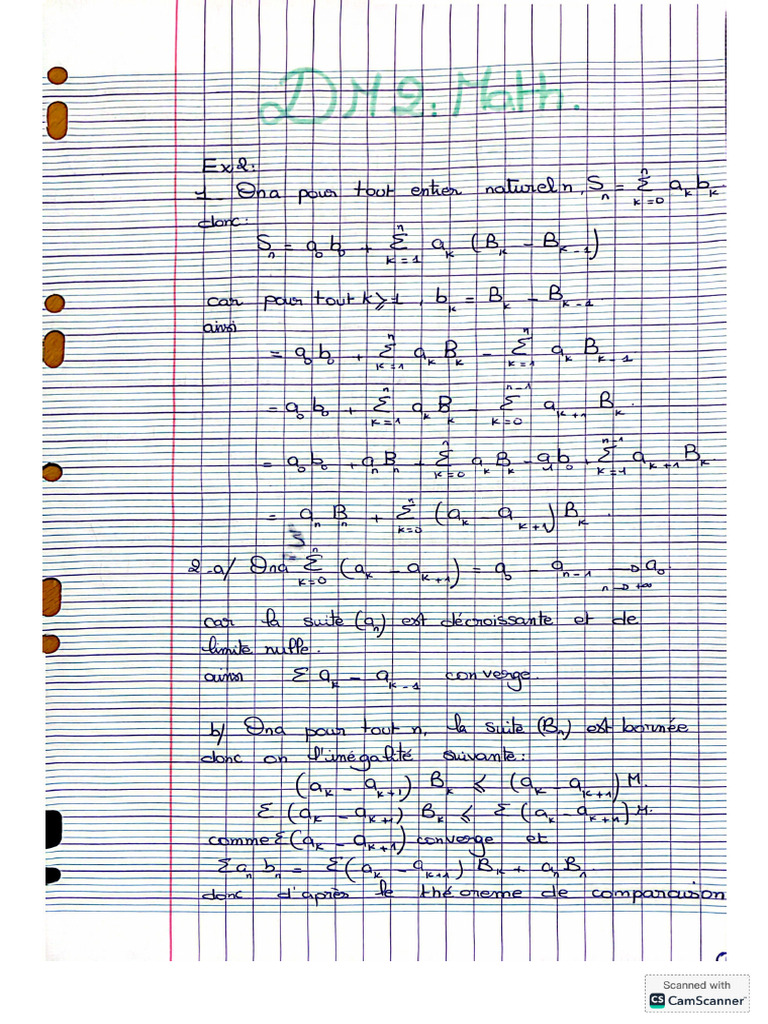 DM2: Math.
Ex2:
1. Ona pour tout entier naturel n, S_n = Σ_{k=0}^{n} a_k b_k
donc:
S_n = a_0 b_0 + Σ_{k=1}^{n} a_k (B_k - B_{k-1})
car pour tout k ⩾ 1, b_k = B_k - B_{k-1}
ainsi
= a_0 b_0 + Σ_{k=1}^{n} a_k B_k - Σ_{k=1}^{n} a_k B_{k-1}
= a_0 b_0 + Σ_{k=1}^{n} a_k B_k - Σ_{k=0}^{n-1} a_{k+1} B_k.
= a_0 b_0 + a_n B_n + Σ_{k=0}^{n} a_k B_k - a_1 b_0 + Σ_{k=1}^{n-1} a_{k+1} B_k.
= a_n B_n + Σ_{k=0}^{n} (a_k - a_{k+1}) B_k.
2-a/ Ona Σ_{k=0}^{n} (a_k - a_{k+1}) = a_0 - a_{n-1} → a_0 n→+∞
car la suite (a_n) est décroissante et de
limite nulle.
ainsi Σ a_k - a_{k-1} converge.
b/ Ona pour tout n, la suite (B_n) est bornée
donc on l'inégalité suivante:
(a_k - a_{k+1}) B_k ⩽ (a_k - a_{k+1}) M.
Σ (a_k - a_{k+1}) B_k ⩽ Σ (a_k - a_{k+1}) M.
comme Σ(a_k - a_{k+1}) converge et
Σ a_n b_n = Σ(a_k - a_{k+1}) B_k + a_n B_n.
donc d'après le théoreme de comparaison
Scanned with
CS CamScanner